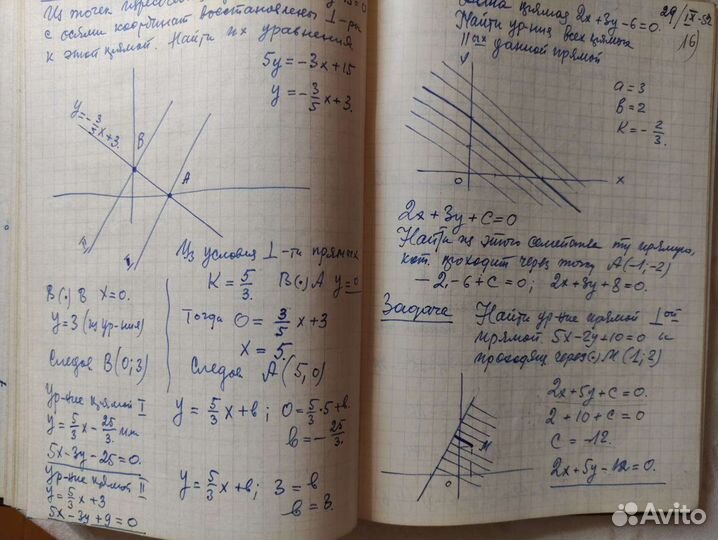 Из точек
с осями координат восстановлены ⊥-ры
к этой прямой. Найти их уравнения
5y = -3x + 15
y = -3/5 x + 3.
y = -3/5 x + 3.
B
A
I
Из условия ⊥-ти прямых
K = 5/3. В(·) A y = 0
В(·) B x = 0.
y = 3 (из ур-ния)
Следов B(0; 3)
Тогда 0 = 3/5 x + 3
x = 5.
Следов A(5, 0)
Ур-ние прямой I
y = 5/3 x - 25/3 или
5x - 3y - 25 = 0.
y = 5/3 x + b; 0 = 5/3 · 5 + b.
b = -25/3.
Ур-ние прямой II
y = 5/3 x + 3
5x - 3y + 9 = 0
y = 5/3 x + b; 3 = b
b = 3.
прямая 2x + 3y - 6 = 0.
29/IX-52
16)
Найти ур-ния всех прямых
||ых данной прямой
y
a = 3
b = 2
K = -2/3.
0
x
2x + 3y + C = 0
Найти из этого семейства ту прямую,
кот. проходит через точку A(-1; -2)
-2 - 6 + C = 0; 2x + 3y + 8 = 0.
Задача
Найти ур-ние прямой ⊥ой
прямой 5x - 2y + 10 = 0 и
проходящ через(·) M(1; 2)
M
0
2x + 5y + C = 0.
2 + 10 + C = 0
C = -12.
2x + 5y - 12 = 0.
Avito